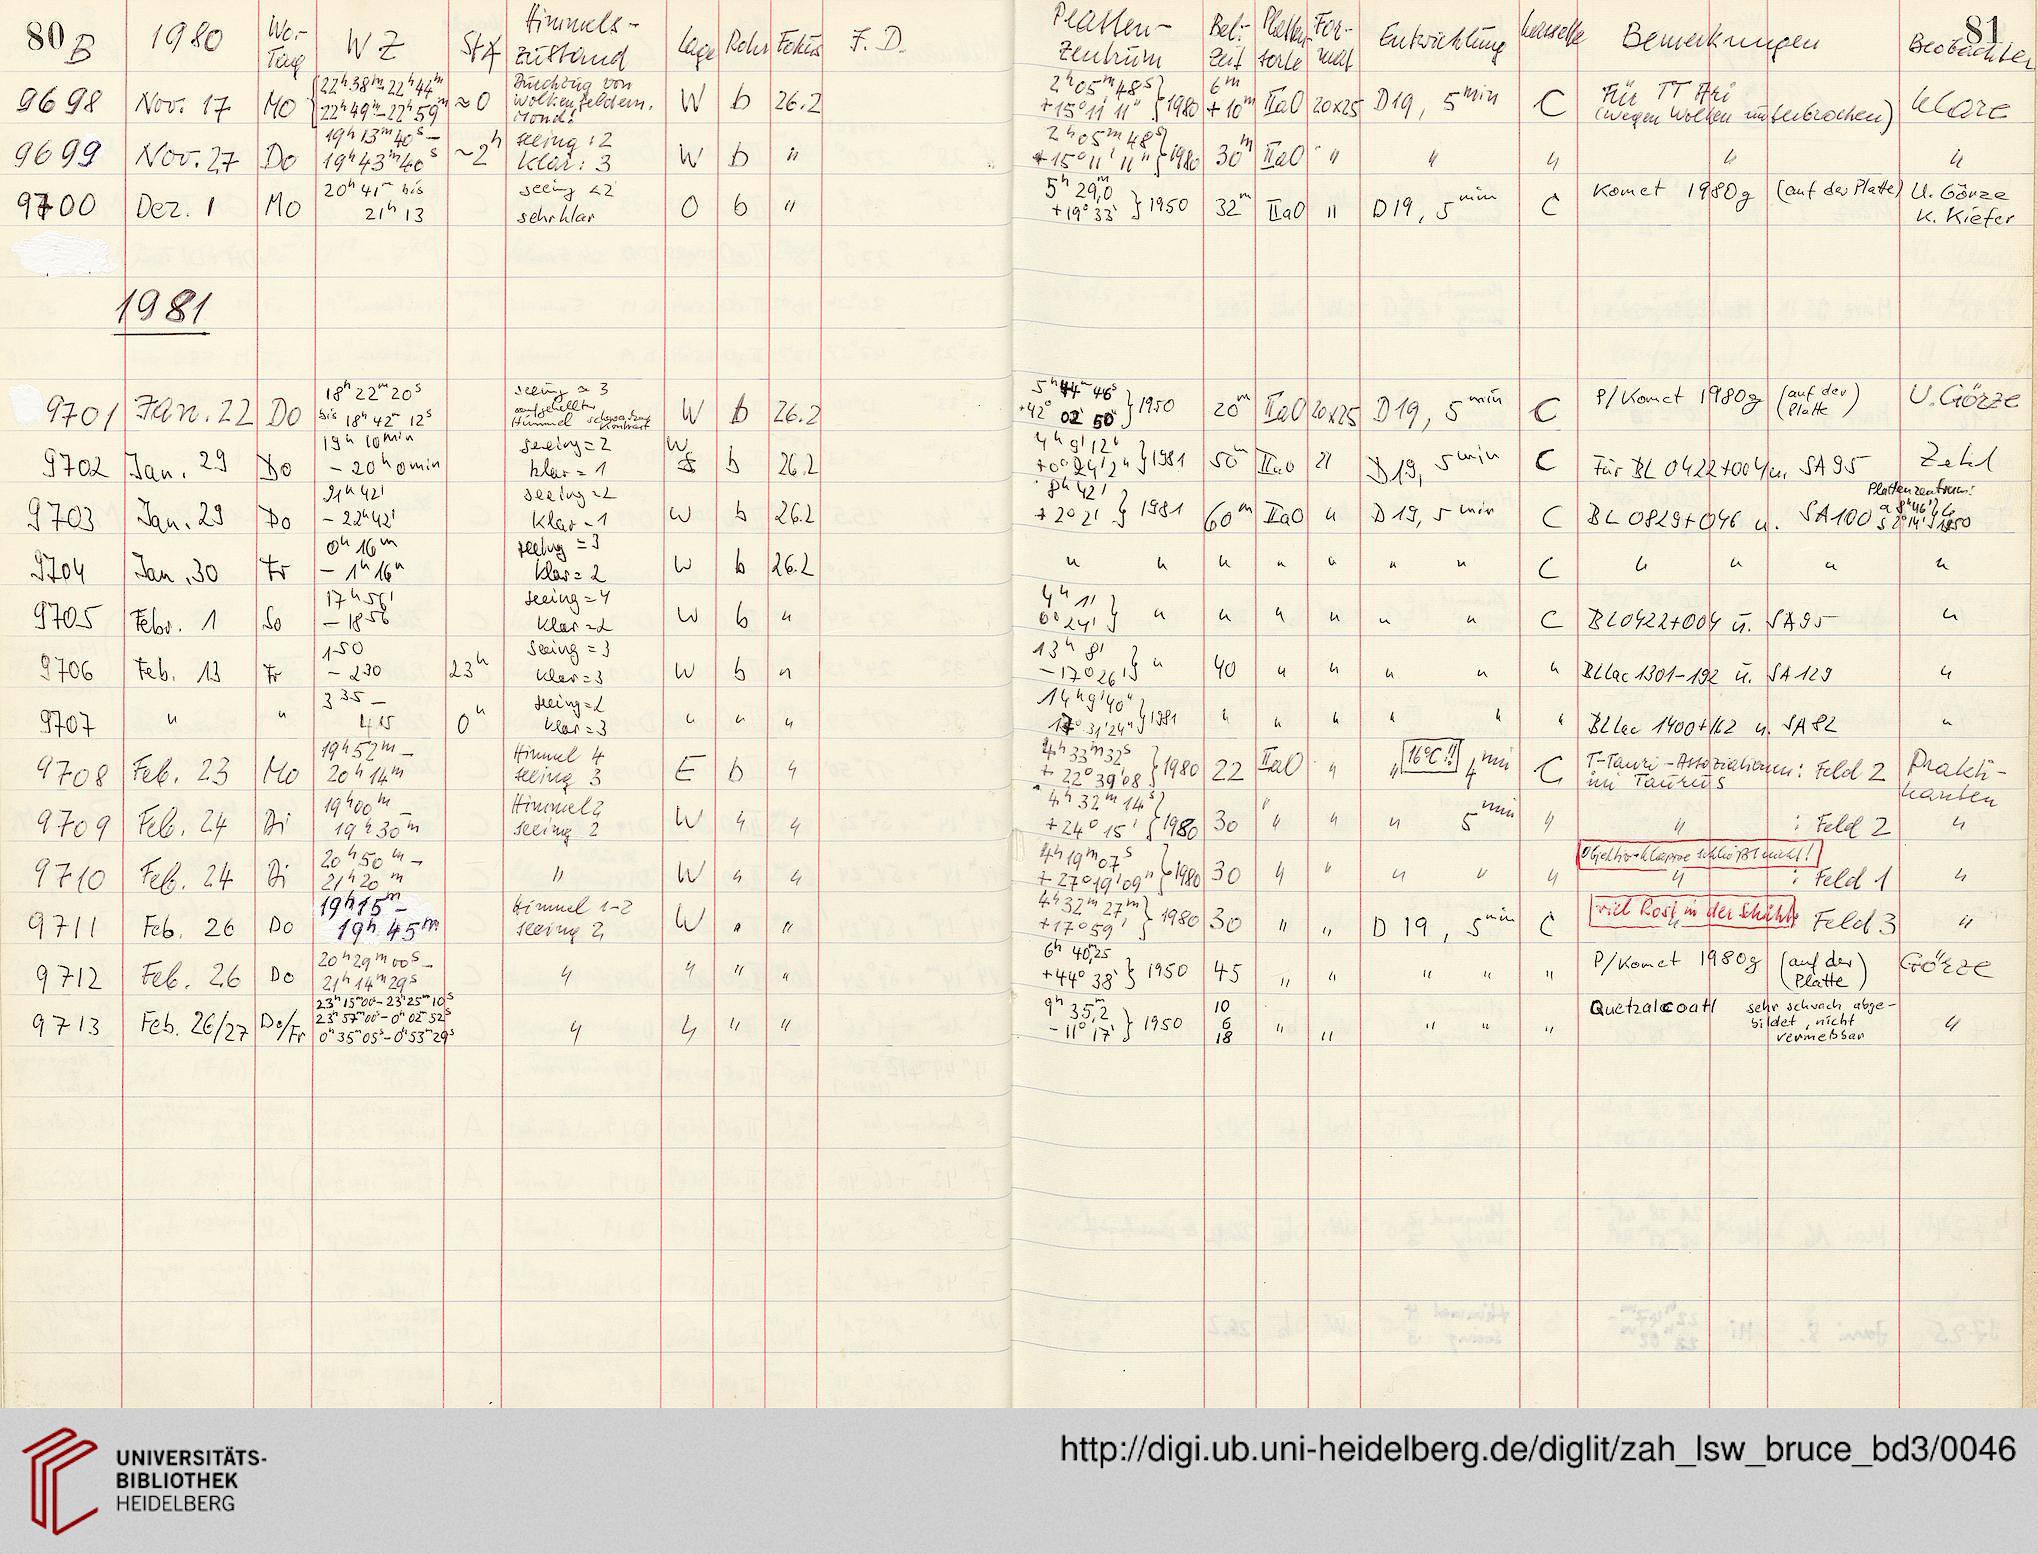 80 81
B 1980 Wo.-Tag WZ St∢ Himmels-zustand Lage Rohr Fokus F.D. Platten-Zentrum Bel:-Zeit Platten sorte For-mat Entwicklung Kassette Bemerkungen Beobachter
9698 Nov. 17 Mo 22h38m-22h44m 22h49m-22h59m ≈0 Durchzug von Wolkenfeldern. Mond! W b 26.2 2h05m48s +15°11'11" } 1980 6m +10m IIaO 20x25 D19, 5min C Für TT Ari (wegen Wolken unterbrochen) Klare
9699 Nov. 27 Do 19h13m40s- 19h43m40s ~2h seeing: 2 klar: 3 W b " 2h05m48s +15°11'11" } 1980 30m IIaO " " " " "
9700 Dez. 1 Mo 20h41m bis 21h13 seeing <2 sehr klar O b " 5h29,0m +19°33' } 1950 32m IIaO " D19, 5min C Komet 1980g (auf der Platte) U. Görze K. Kiefer
1981
9701 Jan. 22 Do 18h22m20s bis 18h42m12s seeing ≈ 3 aufgehellter Himmel schwacher Kontrast W b 26.2 5h44m46s +42°02'50" } 1950 20m IIaO 20x25 D19, 5min C P/Komet 1980g (auf der Platte) U. Görze
9702 Jan. 29 Do 19h10min - 20h0min seeing=2 klar=1 W b 26.2 4h9'12" +0°24'2" } 1981 50m IIaO " D19, 5min C Für BL 0422+004 u. SA95 Zekl
9703 Jan. 29 Do 21h42' - 22h42' seeing=2 klar=1 W b 26.2 8h42' +2°21' } 1981 60m IIaO " D19, 5min C BL 0829+046 u. SA100 Plattenzentrum: α 8h46' δ 2°14' } 1950 "
9704 Jan. 30 Fr 0h16m - 1h16m seeing=3 klar=2 W b 26.2 " " " " " " " C " " " "
9705 Febr. 1 So 17h56' - 1856 seeing=4 klar=2 W b " 4h11' 0°24' } " " " " " " C BL0422+004 u. SA95 "
9706 Feb. 13 Fr 150 - 230 23h seeing=3 klar=3 W b " 13h8' -17°26' } " 40 " " " " " BLLac 1301-192 u. SA129 "
9707 " " 335 - 415 0h seeing=2 klar=3 " " " 14h9'40" 17°31'24" } 1981 " " " " " " BLLac 1400+162 u. SA82 "
9708 Feb. 23 Mo 19h52m- 20h14m Himmel 4 seeing 3 E b " 4h33m32s +22°39'08 } 1980 22 IIaO " " 16°C!! 4min C T-Tauri-Assoziationen: Feld 2 im Taurus Prakti-kanten
9709 Feb. 24 Di 19h00m- 19h30m Himmel 2 seeing 2 W " " 4h32m14s +24°15' } 1980 30 " " " 5min " " : Feld 2 "
9710 Feb. 24 Di 20h50m- 21h20m " W " " 4h19m07s +27°19'09" } 1980 30 " " " " " Objektivklappe schließt nicht! " : Feld 1 "
9711 Feb. 26 Do 19h15m- 19h45m Himmel 1-2 seeing 2 W " " 4h32m27m +17°59' } 1980 30 " " D19, 5min C viel Rost in der Schicht " : Feld 3 "
9712 Feb. 26 Do 20h29m00s- 21h14m29s " " " " 6h40,25m +44°38' } 1950 45 " " " " " P/Komet 1980g (auf der Platte) Görze
9713 Feb. 26/27 Do/Fr 23h15m00s-23h25m10s 23h57m00s-0h02m52s 0h35m05s-0h53m29s " " " " 9h35,2m -11°17' } 1950 10 6 18 " " " " " Quetzalcoatl sehr schwach abge-bildet, nicht vermeßbar "
UNIVERSITÄTS-
BIBLIOTHEK
HEIDELBERG
http://digi.ub.uni-heidelberg.de/diglit/zah_lsw_bruce_bd3/0046